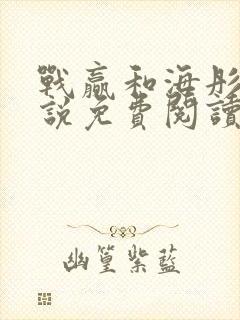 戰贏和海彤
說免費閱讀
幽篁紫藍